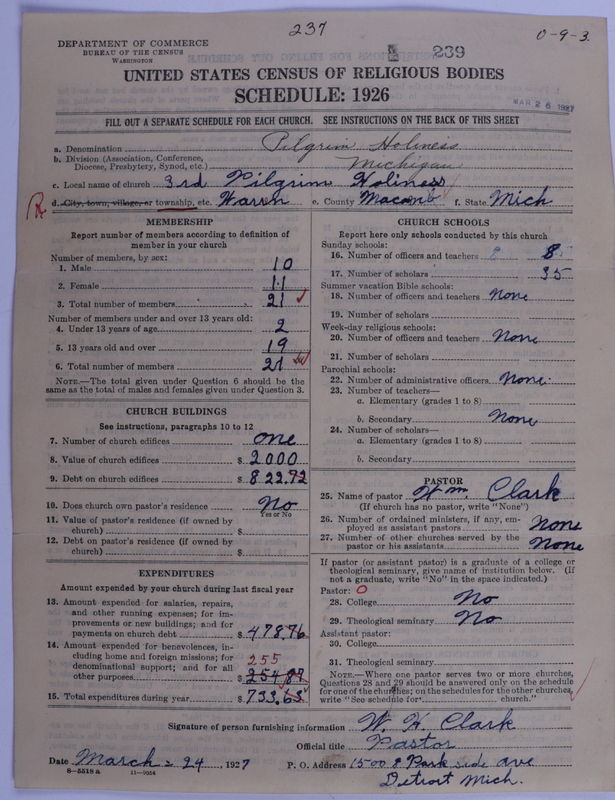 237
0-9-3
239
DEPARTMENT OF COMMERCE
BUREAU OF THE CENSUS
WASHINGTON
UNITED STATES CENSUS OF RELIGIOUS BODIES
SCHEDULE: 1926
MAR 26 1927
FILL OUT A SEPARATE SCHEDULE FOR EACH CHURCH. SEE INSTRUCTIONS ON THE BACK OF THIS SHEET
a. Denomination Pilgrim Holiness
b. Division (Association, Conference, Diocese, Presbytery, Synod, etc.) Michigan
c. Local name of church 3rd Pilgrim Holiness
d. City, town, village, or township, etc. Warren e. County Macomb f. State Mich
MEMBERSHIP
Report number of members according to definition of
member in your church
Number of members, by sex:
1. Male 10
2. Female 11
3. Total number of members 21
Number of members under and over 13 years old:
4. Under 13 years of age 2
5. 13 years old and over 19
6. Total number of members 21
NOTE.—The total given under Question 6 should be
same as the total of males and females given under Question 3.
CHURCH BUILDINGS
See instructions, paragraphs 10 to 12
7. Number of church edifices one
8. Value of church edifices $ 2000
9. Debt on church edifices $ 822.72
10. Does church own pastor's residence No
Yes or No
11. Value of pastor's residence (if owned by
church) $
12. Debt on pastor's residence (if owned by
church) $
EXPENDITURES
Amount expended by your church during last fiscal year
13. Amount expended for salaries, repairs,
and other running expenses; for im-
provements or new buildings; and for
payments on church debt $ 478.76
14. Amount expended for benevolences, in-
cluding home and foreign missions; for 255
denominational support; and for all
other purposes $ 254.87
15. Total expenditures during year $ 733.63
CHURCH SCHOOLS
Report here only schools conducted by this church
Sunday schools:
16. Number of officers and teachers 8 8
17. Number of scholars 35
Summer vacation Bible schools:
18. Number of officers and teachers None
19. Number of scholars
Week-day religious schools:
20. Number of officers and teachers None
21. Number of scholars
Parochial schools:
22. Number of administrative officers None
23. Number of teachers—
a. Elementary (grades 1 to 8)
b. Secondary None
24. Number of scholars—
a. Elementary (grades 1 to 8)
b. Secondary
PASTOR
25. Name of pastor Wm. Clark
(If church has no pastor, write "None")
26. Number of ordained ministers, if any, em-
ployed as assistant pastors None
27. Number of other churches served by the
pastor or his assistants None
If pastor (or assistant pastor) is a graduate of a college or
theological seminary, give name of institution below. (If
not a graduate, write "No" in the space indicated.)
Pastor: 0
28. College No
29. Theological seminary No
Assistant pastor:
30. College
31. Theological seminary
NOTE.—Where one pastor serves two or more churches,
Questions 28 and 29 should be answered only on the schedule
for one of the churches; on the schedules for the other churches,
write "See schedule for church."
Signature of person furnishing information W. H. Clark
Official title Pastor
Date March 24, 1927 P. O. Address 15008 Park side ave
8—5518 a 11—9054 Detroit Mich.